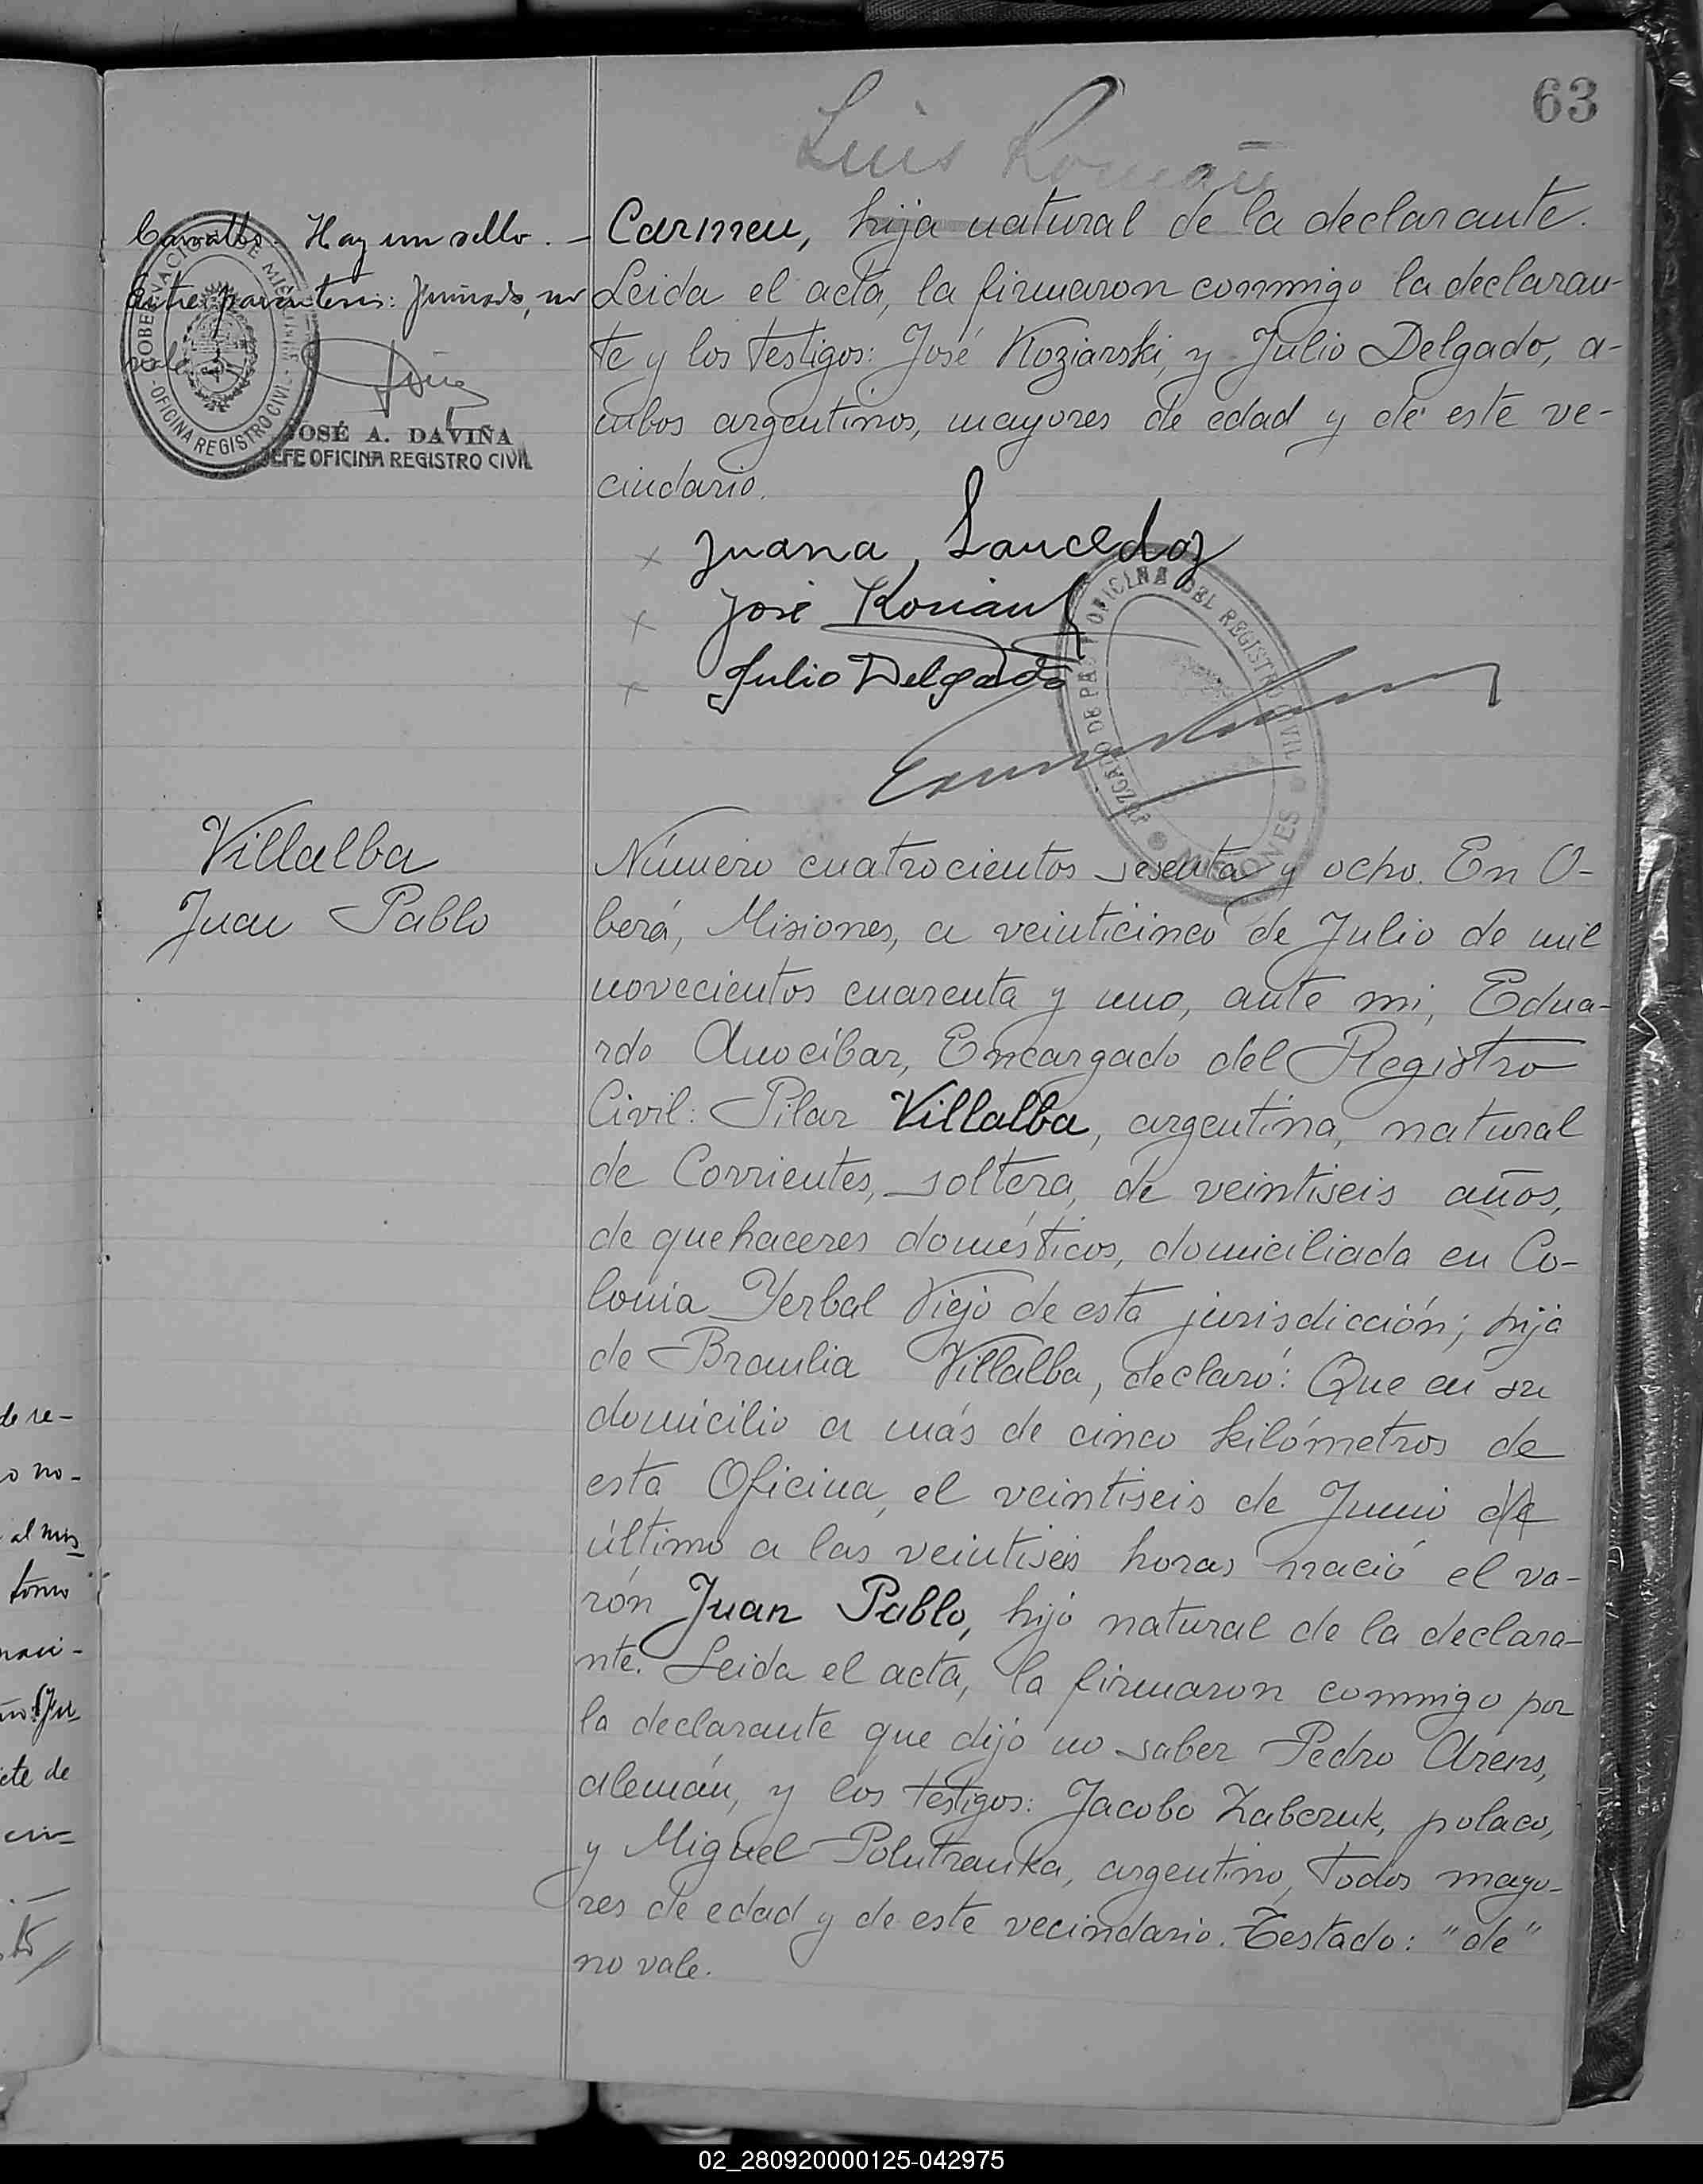 63
Luis Román
Carvallo. Hay un sello. —
Entre parentesis: , no
vale
GOBERNACION DE MISIONES
OFICINA REGISTRO CIVIL
JOSÉ A. DAVIÑA
JEFE OFICINA REGISTRO CIVIL
Carmen, hija natural de la declarante.
Leida el acta, la firmaron conmigo la declaran-
te y los testigos: José Koziarski, y Julio Delgado, a-
mbos argentinos, mayores de edad y de este ve-
cindario.
Juana Saucedo
José
Julio Delgado
JUZGADO DE PAZ Y OFICINA DEL REGISTRO CIVIL
MISIONES
Villalba
Juan Pablo
Número cuatrocientos sesenta y ocho. En O-
berá, Misiones, a veinticinco de Julio de mil
novecientos cuarenta y uno, ante mi, Edua-
rdo Anocíbar, Encargado del Registro
Civil: Pilar Villalba, argentina, natural
de Corrientes, soltera, de veintiseis años,
de quehaceres domésticos, domiciliada en Co-
lonia Yerbal Viejo de esta jurisdicción; hija
de Braulia Villalba, declaró: Que en su
domicilio a más de cinco kilómetros de
esta Oficina, el veintiseis de Junio de
último a las veintiseis horas nació el va-
rón Juan Pablo, hijo natural de la declara-
nte. Leida el acta, la firmaron conmigo por
la declarante que dijo no saber Pedro Arens,
alemán, y los testigos: Jacobo Zabczuk, polaco,
y Miguel Polutranka, argentino, todos mayo-
res de edad y de este vecindario. Testado: "de"
no vale.
de re-
o no-
al mis
tomo
naci-
ete de
02_280920000125-042975